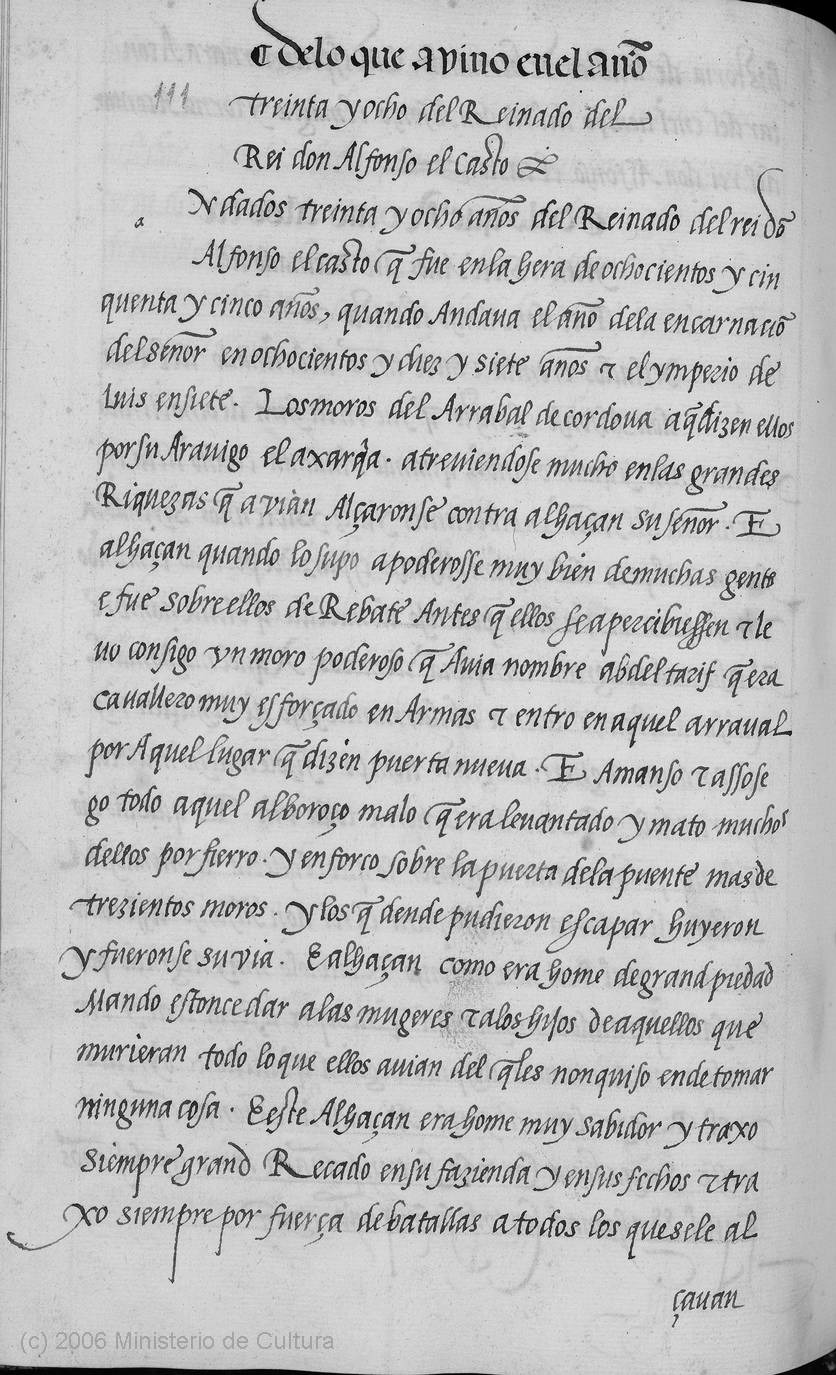 ¶ Delo que avino enel año
111
treinta y ocho del Reinado del
Rei don Alfonso el Casto
a
Ndados treinta y ocho años del Reinado del rei dõ
Alfonso el casto q̃ fue enla hera de ochocientos y cin
quenta y cinco años, quando Andaua el año dela encarnaciõ
del señor en ochocientos y diez y siete años ⁊ el ymperio de
Luis en siete. Los moros del Arrabal de cordoua a q̃ dizen ellos
por su Arauigo el axarq̃a. atreuiendose mucho enlas grandes
Riquezas q̃ avian Alçaronse contra alhaçan su señor. E
alhaçan quando lo supo apoderosse muy bien de muchas gentes
e fue sobre ellos de Rebate Antes q̃ ellos se apercibiessen ⁊ le
uo consigo vn moro poderoso q̃ Auia nombre abdeltarif q̃ era
cavallero muy esforçado en Armas ⁊ entro en aquel arraual
por Aquel lugar q̃ dizen puerta nueva. E Amanso ⁊ assose
go todo aquel alboroço malo q̃ era leuantado y mato muchos
dellos por fierro. y enforco sobre la puerta dela puente mas de
trezientos moros. y los q̃ dende pudieron escapar huyeron
y fueronse su via. E alhaçan como era home de grand piedad
Mando estonce dar alas mugeres ⁊ alos hijos de aquellos que
murieran todo lo que ellos auian del q̃les non quiso ende tomar
ninguna cosa. E este Alhaçan era home muy sabidor y traxo
siempre grand Recado en su fazienda y en sus fechos ⁊ tra
xo siempre por fuerça de batallas a todos los que se le al
çauan
(c) 2006 Ministerio de Cultura